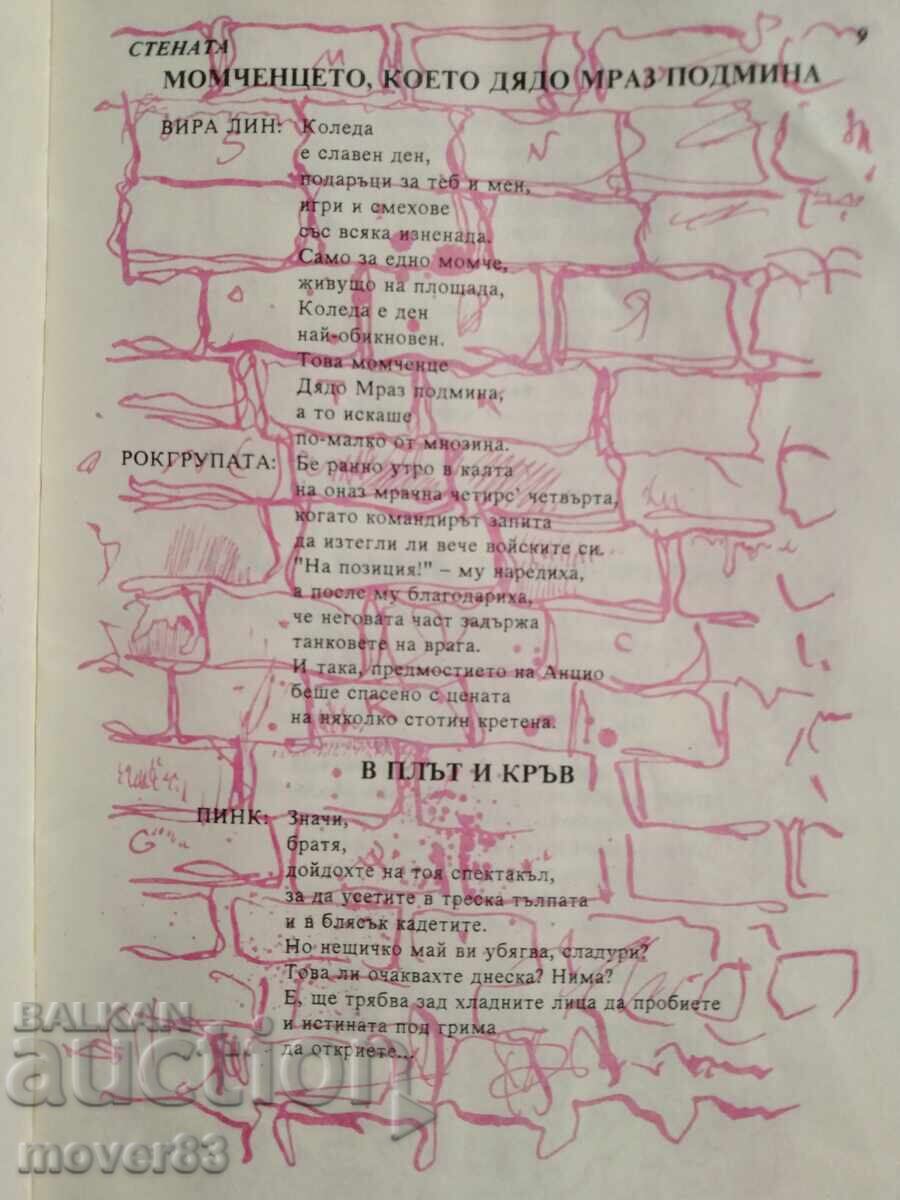 СТЕНАТА
9
МОМЧЕНЦЕТО, КОЕТО ДЯДО МРАЗ ПОДМИНА
ВИРА ЛИН: Коледа
е славен ден,
подаръци за теб и мен,
игри и смехове
със всяка изненада.
Само за едно момче,
живущо на площада,
Коледа е ден
най-обикновен.
Това момченце
Дядо Мраз подмина,
а то искаше
по-малко от мнозина.
РОКГРУПАТА: Бе ранно утро в калта
на оназ мрачна четирс' четвърта,
когато командирът запита
да изтегли ли вече войските си.
"На позиция!" – му наредиха,
а после му благодариха,
че неговата част задържа
танковете на врага.
И така, предмостието на Анцио
беше спасено с цената
на няколко стотин кретена.
В ПЛЪТ И КРЪВ
ПИНК: Значи,
братя,
дойдохте на тоя спектакъл,
за да усетите в треска тълпата
и в блясък кадетите.
Но нещичко май ви убягва, сладури?
Това ли очаквахте днеска? Нима?
Е, ще трябва зад хладните лица да пробиете
и истината под грима
да откриете...
BALKAN
auction
mover83